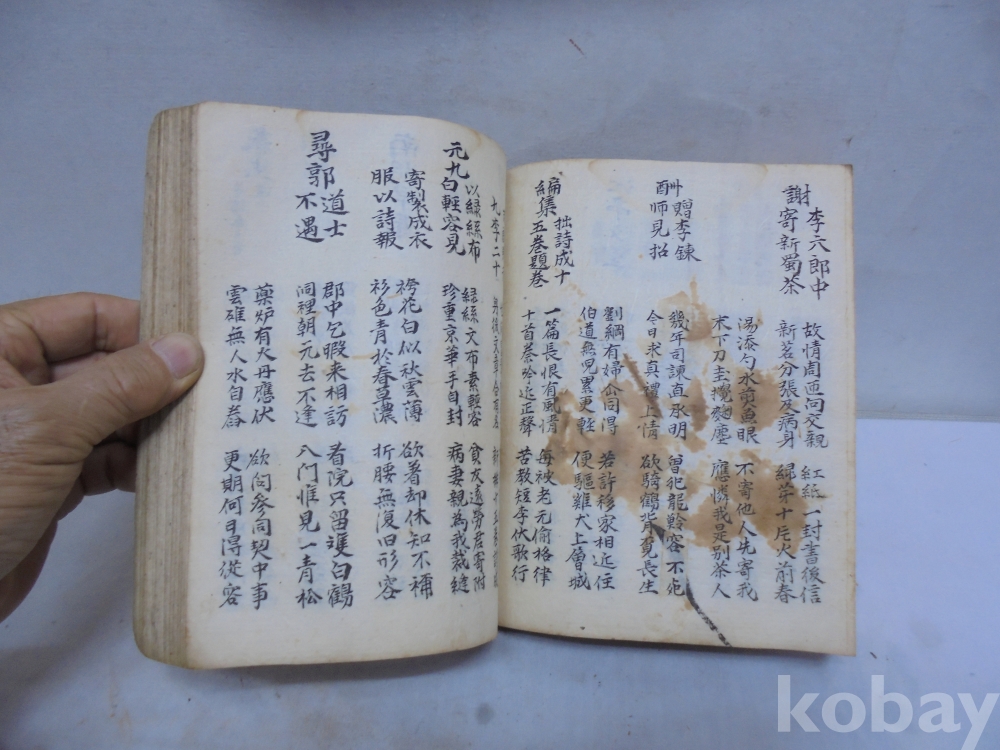 謝李六郎中
寄新蜀茶
故情周匝向交親 紅紙一封書後信
新茗分張及病身 緑芽十片火前春
湯添勺水煎魚眼 不寄他人先寄我
末下刀圭攪麹塵 應憐我是別茶人
贈李鍊
酬师見招
幾年司諫直承明 曾犯龍鱗容不死
今日求真禮上情 欲騎鶴背覓長生
劉綱有婦仚同得 若許移家相近住
伯道無児累更軽 便驅雞犬上層城
拙詩成十
編集五巻題巻
一篇長恨有風情 每被老元偷格律
十首秦吟近正聲 苦教短李伏歌行
九李二十
元九以緑絲布
白輕容見
寄製成衣
服以詩報
緑絲文布素輕容 貧友遠勞君寄附
珍重京華手自封 病妻親為我裁縫
袴花白似秋雲薄 欲著却休知不補
衫色青於春草濃 折腰無復旧形容
尋郭道士
不遇
郡中乞暇来相訪 看院只留雙白鶴
洞裡朝元去不逢 入門惟見一青松
藥炉有火丹應伏 欲問參同契中事
雲碓無人水自舂 更期何日得從容
kobay